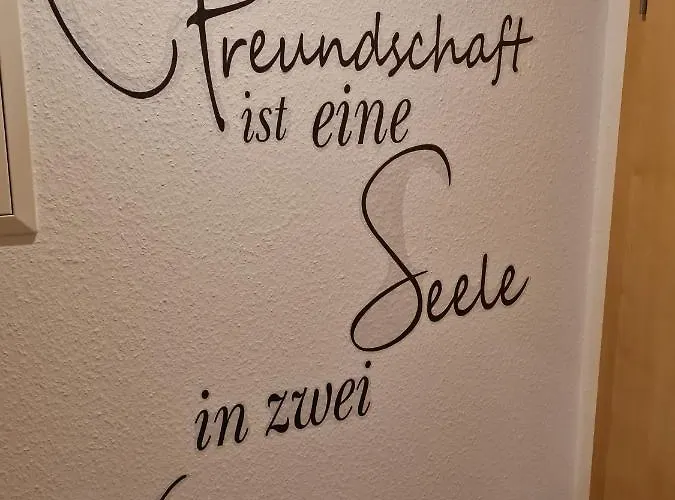 Freundschaft
ist eine
Seele
in zwei